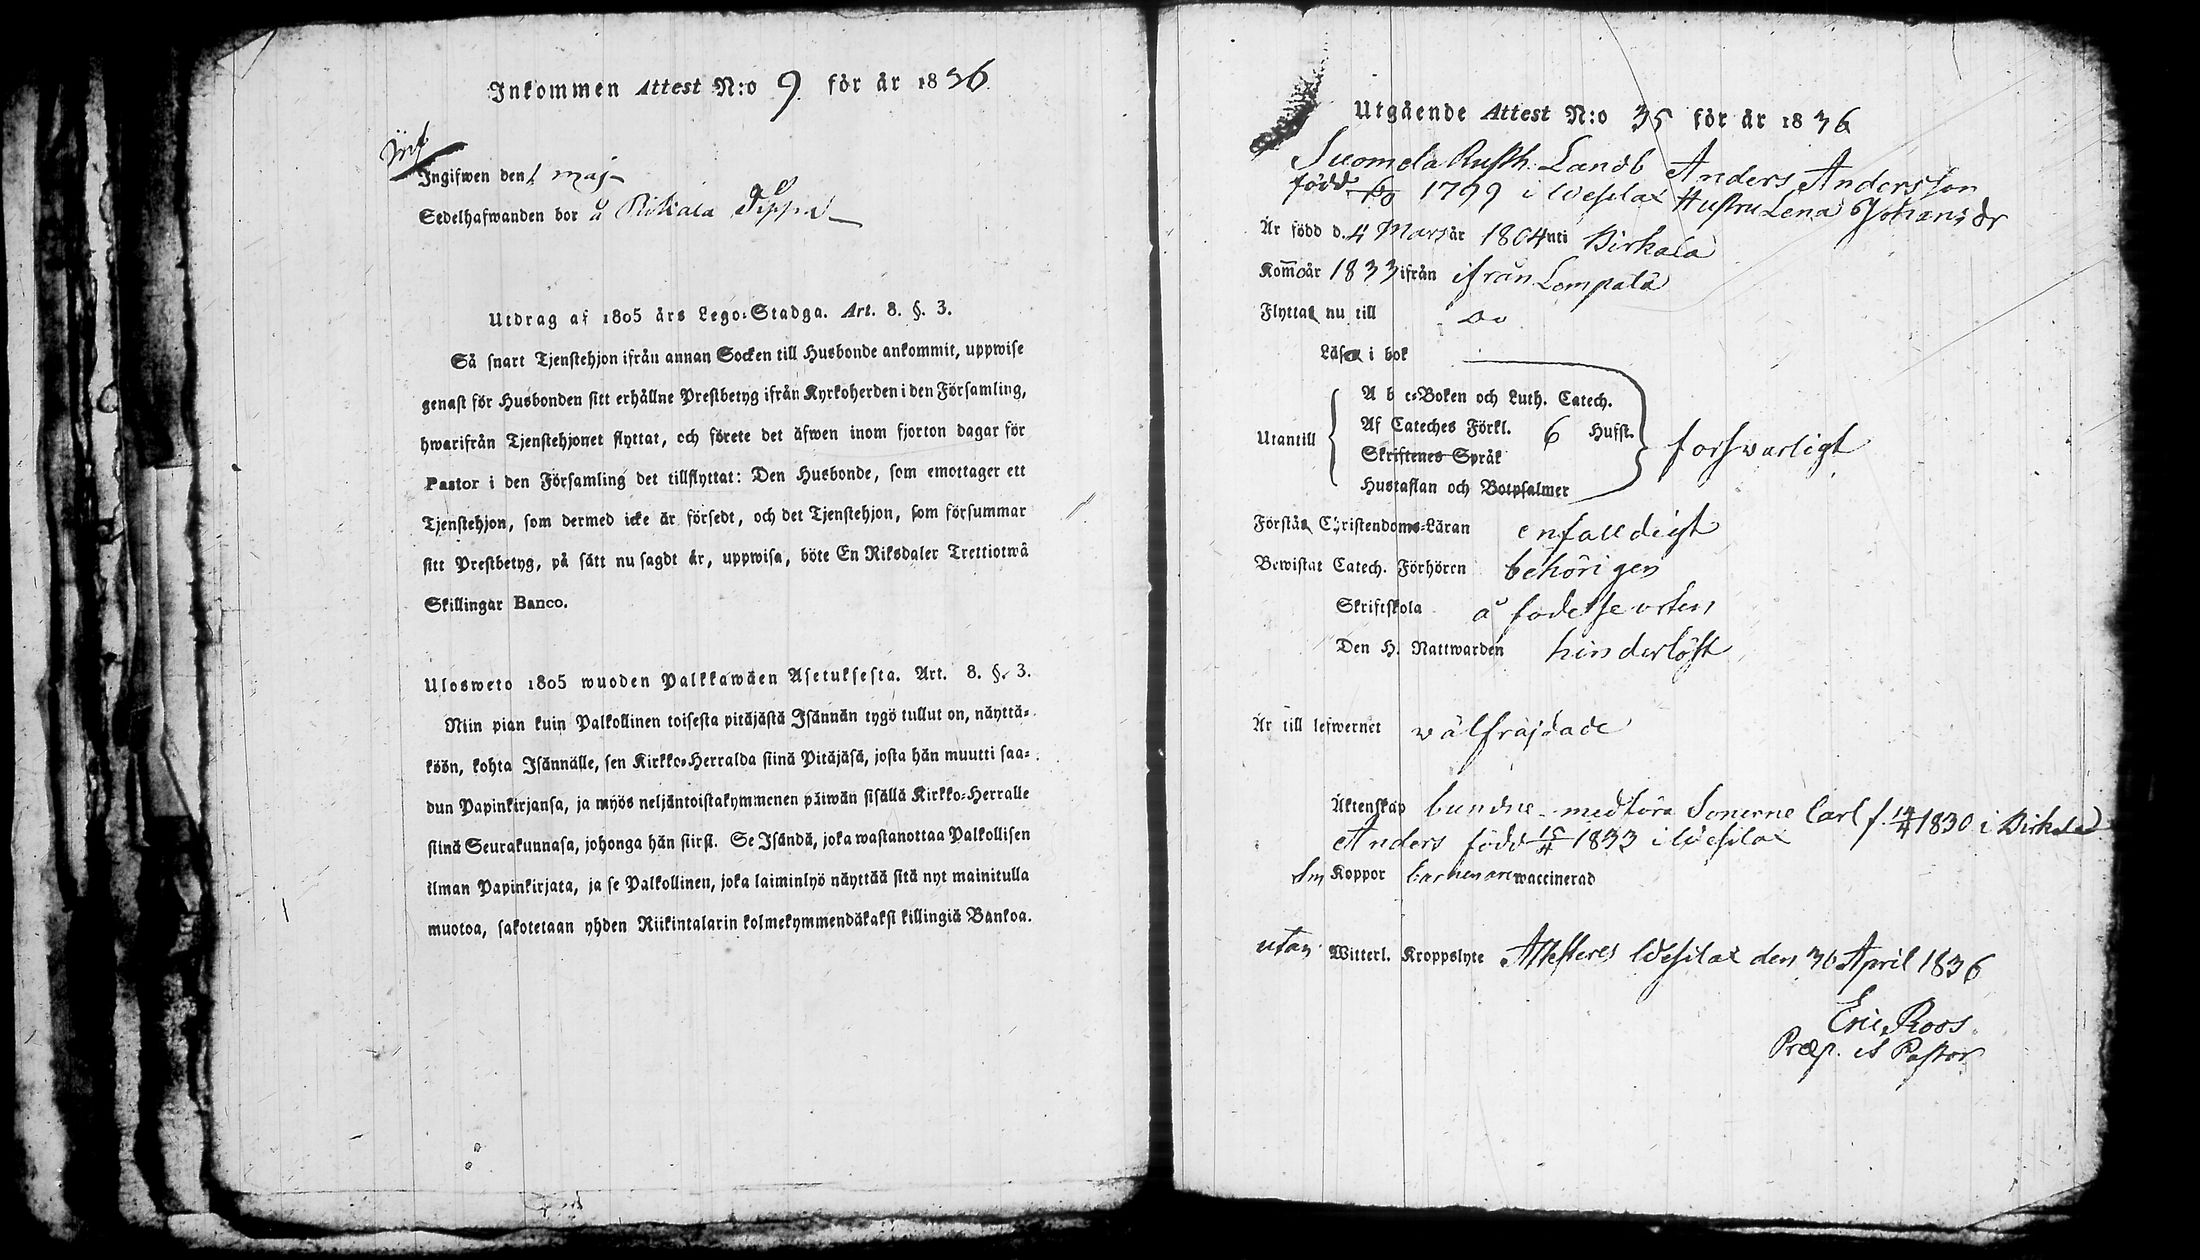 Inkommen Attest N:o 9. för år 1836.
Inf
Ingifwen den 1 maj
Sedelhafwanden bor å Rikala Seppä
Utdrag af 1805 års Lego-Stadga. Art. 8. §. 3.
Så snart Tjenstehjon ifrån annan Socken till Husbonde ankommit, uppwise
genast för Husbonden sitt erhållne Prestbetyg ifrån Kyrkoherden i den Församling,
hwarifrån Tjenstehjonet flyttat, och förete det äfwen inom fjorton dagar för
Pastor i den Församling det tillflyttat: Den Husbonde, som emottager ett
Tjenstehjon, som dermed icke är försedt, och det Tjenstehjon, som försummar
sitt Prestbetyg, på sätt nu sagdt är, uppwisa, böte En Riksdaler Trettiotwå
Skillingar Banco.
Ulosweto 1805 wuoden Palkkawäen Asetuksesta. Art. 8. §. 3.
Niin pian kuin Palkollinen toisesta pitäjästä Isännän tygö tullut on, näyttä-
köön, kohta Isännälle, sen Kirkko-Herralda siinä Pitäjäsä, josta hän muutti saa-
dun Papinkirjansa, ja myös neljäntoistakymmenen päiwän sisällä Kirkko-Herralle
siinä Seurakunnasa, johonga hän siirsi. Se Isändä, joka wastanottaa Palkollisen
ilman Papinkirjata, ja se Palkollinen, joka laiminlyö näyttää sitä nyt mainitulla
muotoa, sakotetaan yhden Riikintalarin kolmekymmendäkaksi killingiä Bankoa.
Utgående Attest N:o 35 för år 1836
Suomela Rusth. Landb Anders Andersson
född 1799 i Wesilax Hustru Lena Johansdr
Är född d. 4 Mars år 1804 uti Birkala
Kommo år 1833 ifrån ifrån Lempälä
Flyttat nu till do
Läsa i bok
Utantill
A b c-Boken och Luth. Catech.
Af Cateches Förkl. 6 Hufst.
Skriftenes Språk
Hustaflan och Botpsalmer
forswarligt
Förstå Christendoms-Läran enfalldigt
Bewistat Catech. Förhören behörigen
Skriftskola å fodelse orten
Den H. Nattwarden hinderlöst
Är till lefwernet wälfräjdade
Äktenskap bundne medföra Sonerne Carl f. 14/4 1830 i Birkala
Anders född 15/4 1833 i Wesilax
Sm Koppor barnen äre waccinerad
utan Witterl. Kroppslyte Attesteres Wesilax den 30 April 1836
Eric Roos
Præp. et Pastor